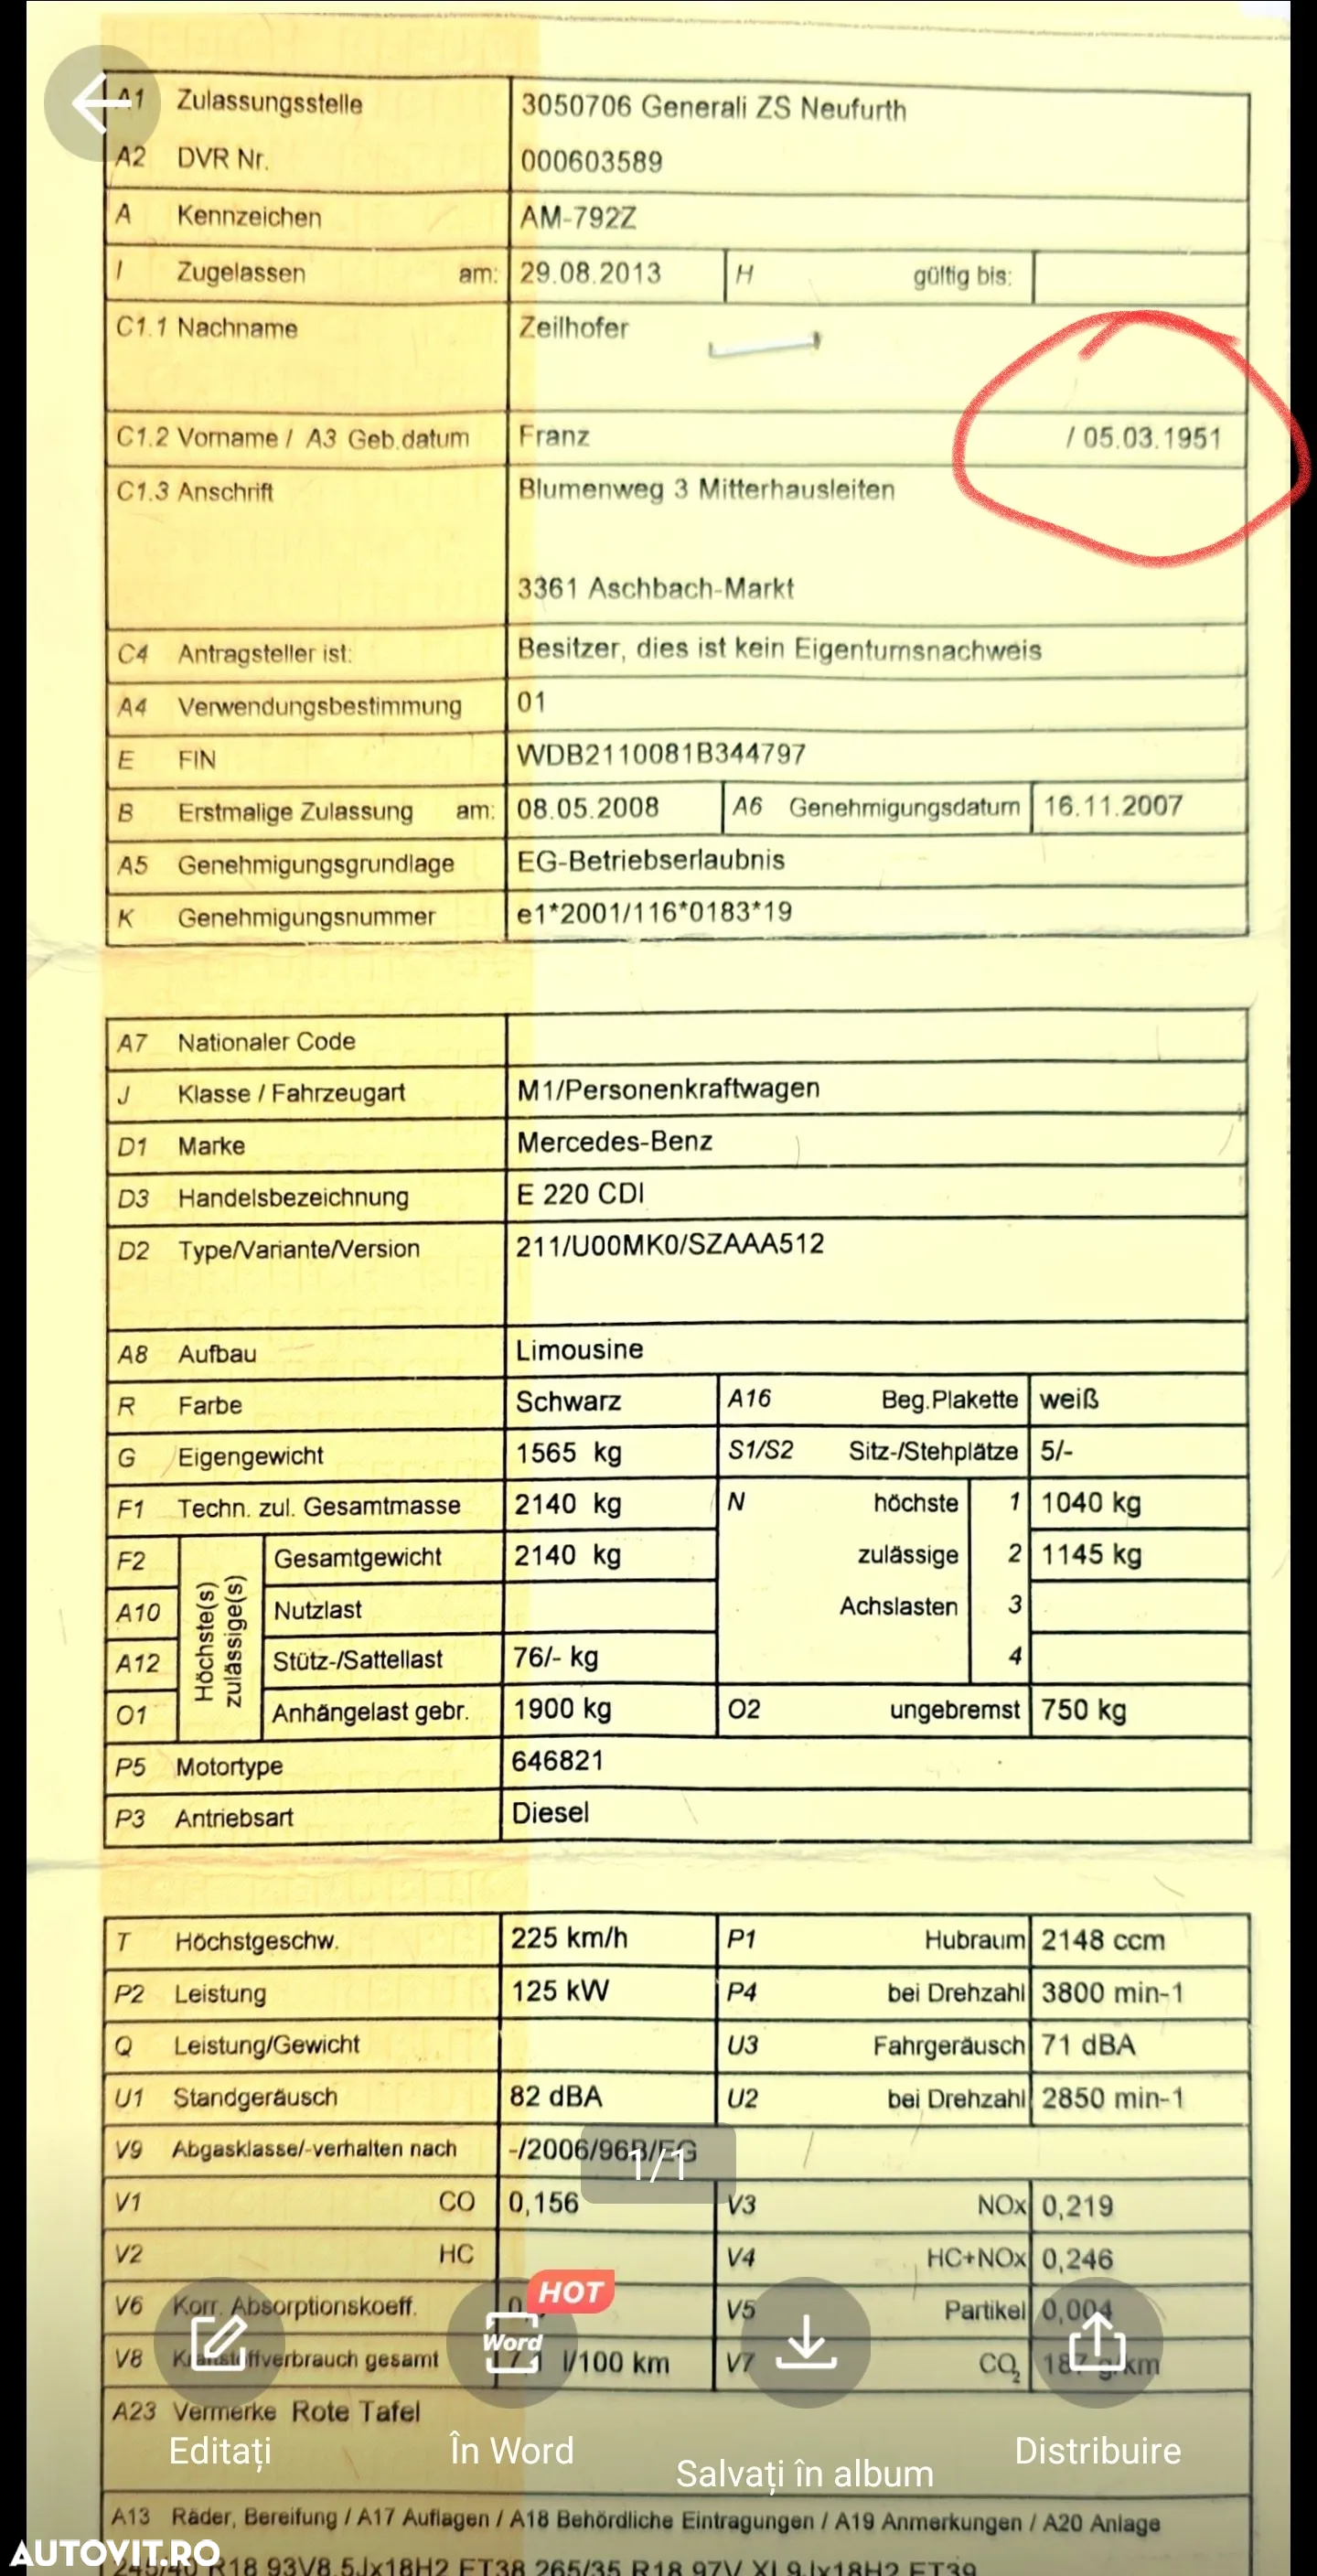 A1 Zulassungsstelle 3050706 Generali ZS Neufurth
A2 DVR Nr. 000603589
A Kennzeichen AM-792Z
I Zugelassen am: 29.08.2013 H gültig bis:
C1.1 Nachname Zeilhofer
C1.2 Vorname / A3 Geb.datum Franz / 05.03.1951
C1.3 Anschrift Blumenweg 3 Mitterhausleiten
3361 Aschbach-Markt
C4 Antragsteller ist: Besitzer, dies ist kein Eigentumsnachweis
A4 Verwendungsbestimmung 01
E FIN WDB2110081B344797
B Erstmalige Zulassung am: 08.05.2008 A6 Genehmigungsdatum 16.11.2007
A5 Genehmigungsgrundlage EG-Betriebserlaubnis
K Genehmigungsnummer e1*2001/116*0183*19
A7 Nationaler Code
J Klasse / Fahrzeugart M1/Personenkraftwagen
D1 Marke Mercedes-Benz
D3 Handelsbezeichnung E 220 CDI
D2 Type/Variante/Version 211/U00MK0/SZAAA512
A8 Aufbau Limousine
R Farbe Schwarz A16 Beg.Plakette weiß
G Eigengewicht 1565 kg S1/S2 Sitz-/Stehplätze 5/-
F1 Techn. zul. Gesamtmasse 2140 kg N höchste 1 1040 kg
F2 Höchste(s) zulässige(s) Gesamtgewicht 2140 kg zulässige 2 1145 kg
A10 Nutzlast Achslasten 3
A12 Stütz-/Sattellast 76/- kg 4
O1 Anhängelast gebr. 1900 kg O2 ungebremst 750 kg
P5 Motortype 646821
P3 Antriebsart Diesel
T Höchstgeschw. 225 km/h P1 Hubraum 2148 ccm
P2 Leistung 125 kW P4 bei Drehzahl 3800 min-1
Q Leistung/Gewicht U3 Fahrgeräusch 71 dBA
U1 Standgeräusch 82 dBA U2 bei Drehzahl 2850 min-1
V9 Abgasklasse/-verhalten nach -/2006/96B/EG
1/1
V1 CO 0,156 V3 NOx 0,219
V2 HC V4 HC+NOx 0,246
HOT
V6 Korr. Absorptionskoeff. V5 Partikel 0,004
Word
V8 Kraftstoffverbrauch gesamt 7,1 l/100 km V7 CO2 187 g/km
A23 Vermerke Rote Tafel
Editați În Word Salvați în album Distribuire
A13 Räder, Bereifung / A17 Auflagen / A18 Behördliche Eintragungen / A19 Anmerkungen / A20 Anlage
AUTOVIT.RO
R18 93V8,5Jx18H2 ET38 265/35 R18 97V XL9Jx18H2 ET39